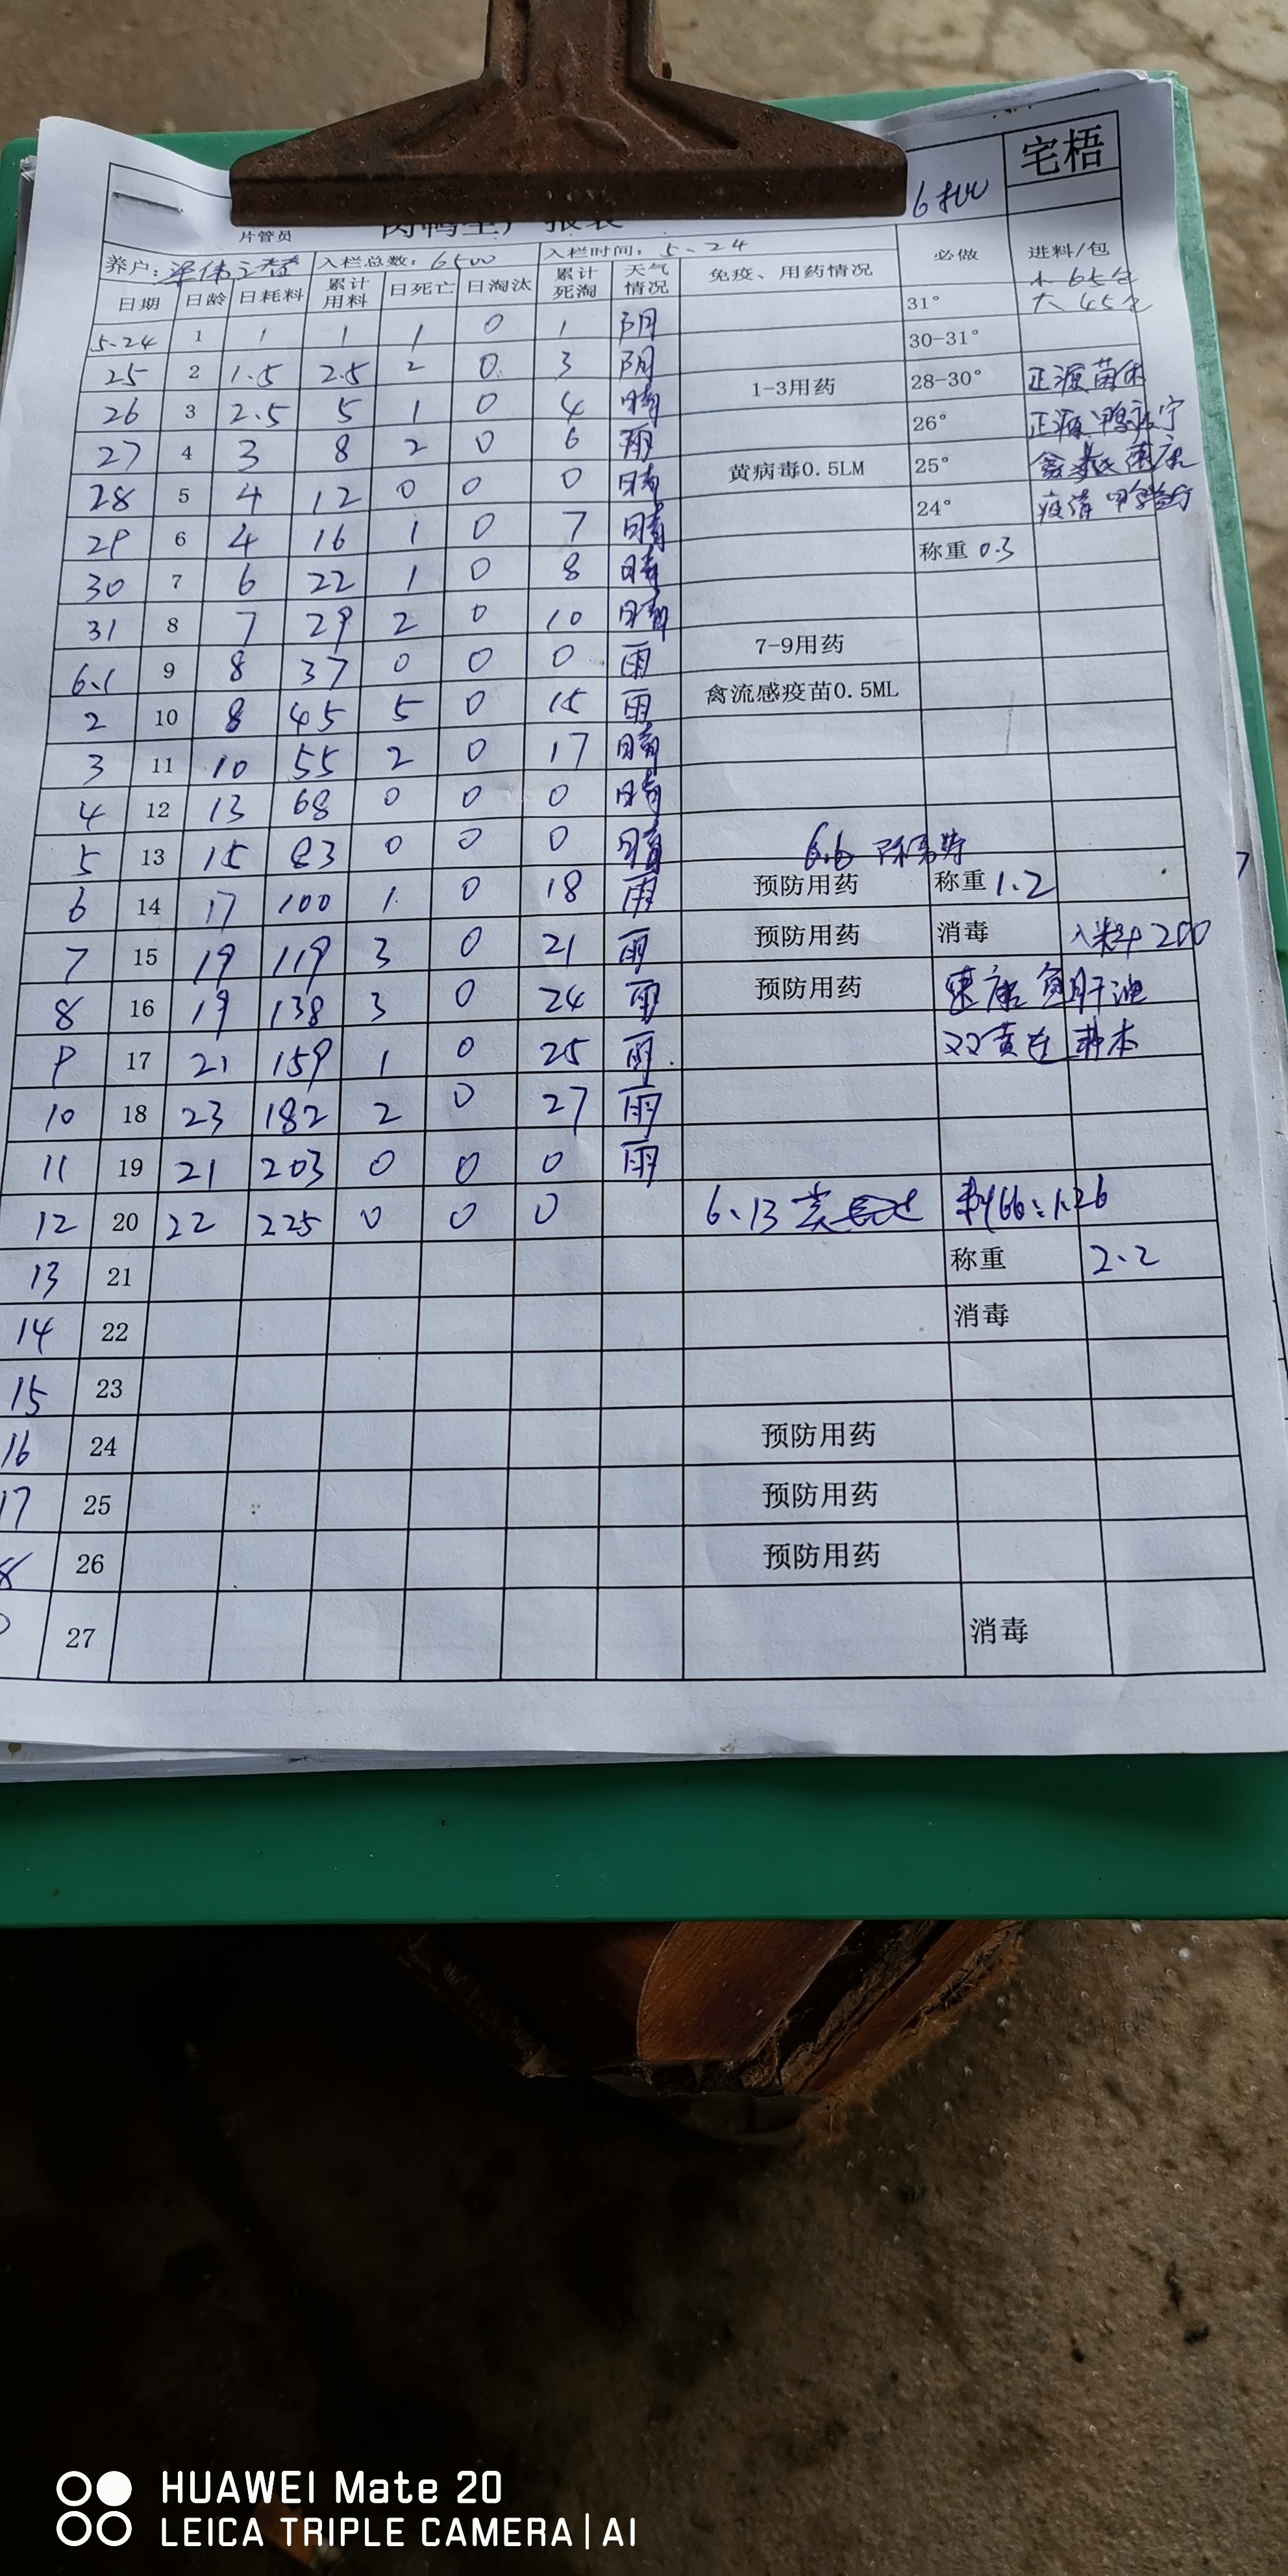 宅梧
6500
肉鸭生产报表
片管员
养户: 入栏总数: 6500 入栏时间: 5.24 必做 进料/包
日期 日龄 日耗料 累计用料 日死亡 日淘汰 累计死淘 天气情况 免疫、用药情况 小65包
5.24 1 1 1 1 0 1 阴 31° 大45包
25 2 1.5 2.5 2 0 3 阴 30-31°
26 3 2.5 5 1 0 4 晴 1-3用药 28-30° 正源
27 4 3 8 2 0 6 雨 26° 正源
28 5 4 12 0 0 0 晴 黄病毒0.5LM 25°
29 6 4 16 1 0 7 晴 24°
30 7 6 22 1 0 8 晴 称重 0.3
31 8 7 29 2 0 10 晴
6.1 9 8 37 0 0 0 雨 7-9用药
2 10 8 45 5 0 15 雨 禽流感疫苗0.5ML
3 11 10 55 2 0 17 晴
4 12 13 68 0 0 0 晴
5 13 15 83 0 0 0 晴 6.6
6 14 17 100 1 0 18 雨 预防用药 称重 1.2
7 15 19 119 3 0 21 雨 预防用药 消毒 入料 200
8 16 19 138 3 0 24 雨 预防用药 鱼肝油
9 17 21 159 1 0 25 雨 双黄连
10 18 23 182 2 0 27 雨
11 19 21 203 0 0 0 雨
12 20 22 225 0 0 0 6.13
13 21 称重 2.2
14 22 消毒
15 23
16 24 预防用药
17 25 预防用药
8 26 预防用药
27 消毒
HUAWEI Mate 20
LEICA TRIPLE CAMERA | AI